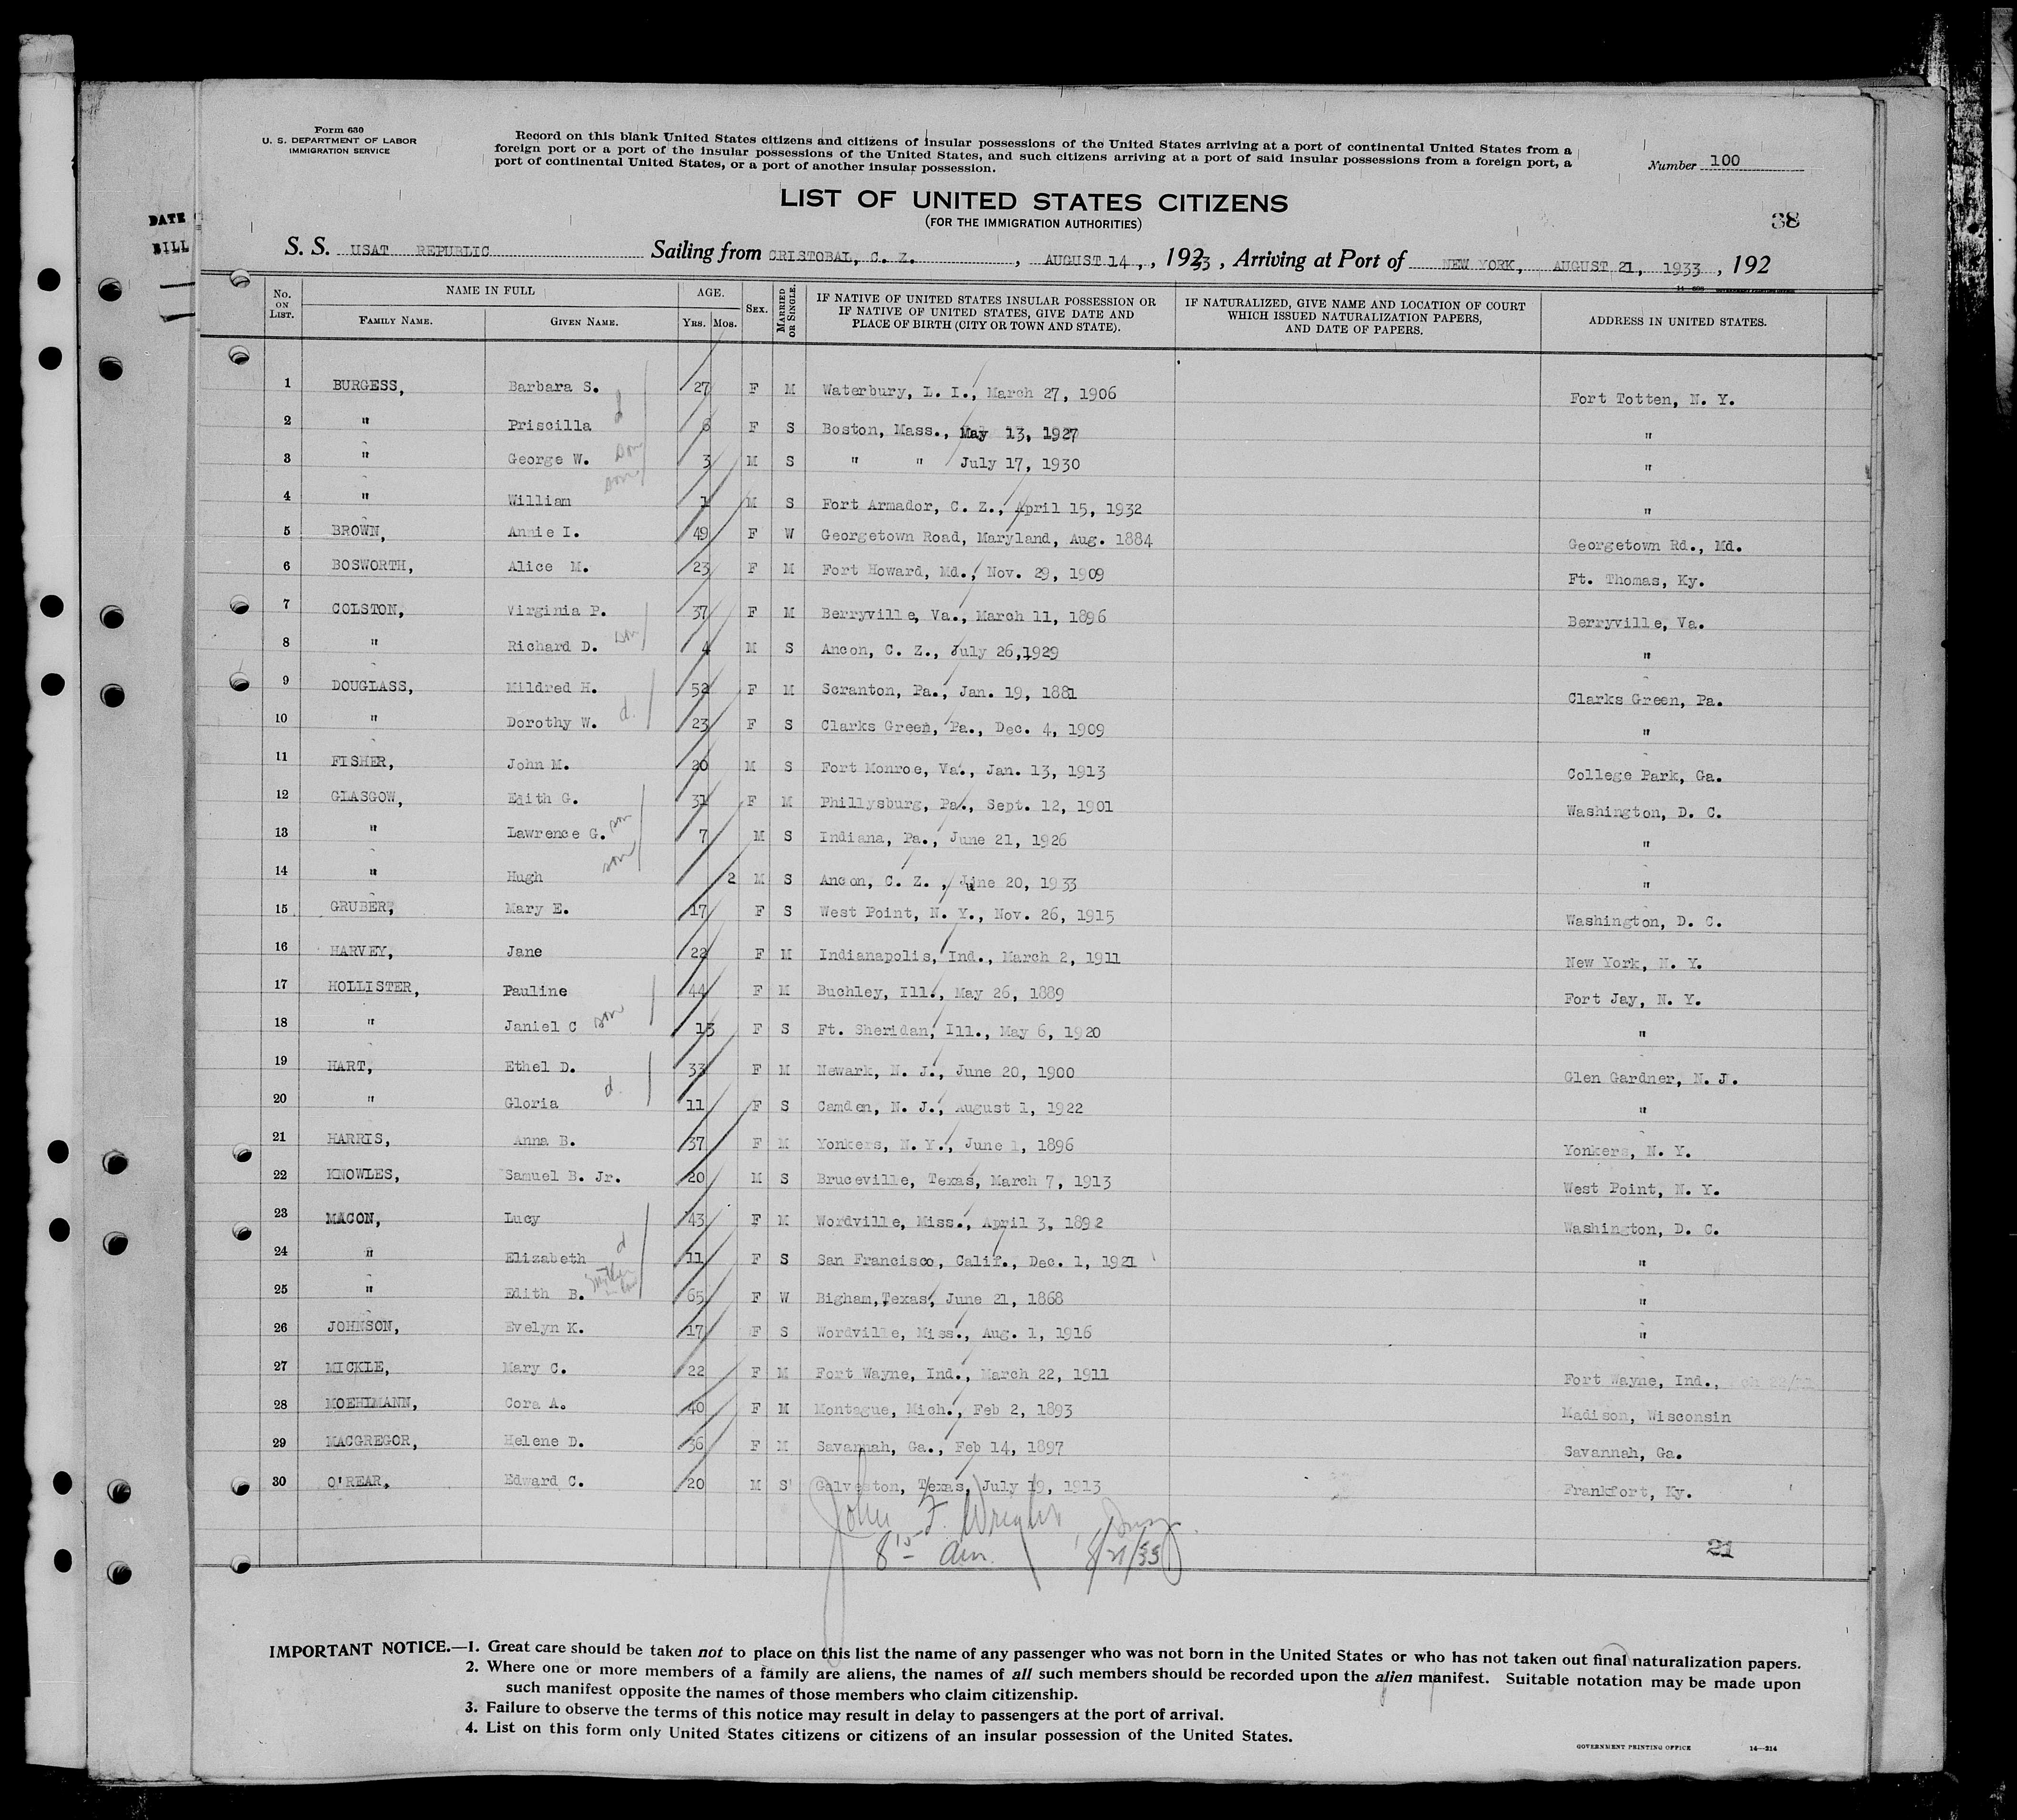 Form 630
U. S. DEPARTMENT OF LABOR
IMMIGRATION SERVICE
Record on this blank United States citizens and citizens of insular possessions of the United States arriving at a port of continental United States from a
foreign port or a port of the insular possessions of the United States, and such citizens arriving at a port of said insular possessions from a foreign port, a
port of continental United States, or a port of another insular possession.
Number 100
LIST OF UNITED STATES CITIZENS
(FOR THE IMMIGRATION AUTHORITIES)
38
DATE
BILL
S. S. USAT REPUBLIC Sailing from CRISTOBAL, C. Z. , AUGUST 14 , , 19233 , Arriving at Port of NEW YORK, AUGUST 21, 1933 , 192
No. ON LIST. NAME IN FULL AGE. SEX. MARRIED OR SINGLE. IF NATIVE OF UNITED STATES INSULAR POSSESSION OR IF NATIVE OF UNITED STATES, GIVE DATE AND PLACE OF BIRTH (CITY OR TOWN AND STATE). IF NATURALIZED, GIVE NAME AND LOCATION OF COURT WHICH ISSUED NATURALIZATION PAPERS, AND DATE OF PAPERS. ADDRESS IN UNITED STATES.
FAMILY NAME. GIVEN NAME. YRS. MOS.
1 BURGESS, Barbara S. 27 F M Waterbury, L. I., March 27, 1906 Fort Totten, N. Y.
2 " Priscilla d 6 F S Boston, Mass., May 13, 1927 "
3 " George W. son 3 M S " " July 17, 1930 "
4 " William son 1 M S Fort Armador, C. Z., April 15, 1932 "
5 BROWN, Annie I. 49 F W Georgetown Road, Maryland, Aug. 1884 Georgetown Rd., Md.
6 BOSWORTH, Alice M. 23 F M Fort Howard, Md., Nov. 29, 1909 Ft. Thomas, Ky.
7 COLSTON, Virginia P. 37 F M Berryville, Va., March 11, 1896 Berryville, Va.
8 " Richard D. son 4 M S Ancon, C. Z., July 26,1929 "
9 DOUGLASS, Mildred H. 52 F M Scranton, Pa., Jan. 19, 1881 Clarks Green, Pa.
10 " Dorothy W. d. 23 F S Clarks Green, Pa., Dec. 4, 1909 "
11 FISHER, John M. 20 M S Fort Monroe, Va., Jan. 13, 1913 College Park, Ga.
12 GLASGOW, Edith G. 31 F M Phillysburg, Pa., Sept. 12, 1901 Washington, D. C.
13 " Lawrence G. son 7 M S Indiana, Pa., June 21, 1926 "
14 " Hugh son 2 M S Ancon, C. Z. , June 20, 1933 "
15 GRUBER, Mary E. 17 F S West Point, N. Y., Nov. 26, 1915 Washington, D. C.
16 HARVEY, Jane 22 F M Indianapolis, Ind., March 2, 1911 New York, N. Y.
17 HOLLISTER, Pauline 44 F M Buchley, Ill., May 26, 1889 Fort Jay, N. Y.
18 " Janiel C son 13 F S Ft. Sheridan, Ill., May 6, 1920 "
19 HART, Ethel D. 33 F M Newark, N. J., June 20, 1900 Glen Gardner, N. J.
20 " Gloria d. 11 F S Camden, N. J., August 1, 1922 "
21 HARRIS, Anna B. 37 F M Yonkers, N. Y., June 1, 1896 Yonkers, N. Y.
22 KNOWLES, Samuel B. Jr. 20 M S Bruceville, Texas, March 7, 1913 West Point, N. Y.
23 MACON, Lucy 43 F M Wordville, Miss., April 3, 1892 Washington, D. C.
24 " Elizabeth d 11 F S San Francisco, Calif., Dec. 1, 1921 "
25 " Edith B. Mother in law 65 F W Bigham,Texas, June 21, 1868 "
26 JOHNSON, Evelyn K. 17 F S Wordville, Miss., Aug. 1, 1916 "
27 MICKLE, Mary C. 22 F M Fort Wayne, Ind., March 22, 1911 Fort Wayne, Ind.,
28 MOEHLMANN, Cora A. 40 F M Montague, Mich., Feb 2, 1893 Madison, Wisconsin
29 MACGREGOR, Helene D. 36 F M Savannah, Ga., Feb 14, 1897 Savannah, Ga.
30 O'REAR, Edward C. 20 M S Galveston, Texas, July 19, 1913 Frankfort, Ky.
John F. Wright Insp.
8 15 am. 8/21/33
21
IMPORTANT NOTICE.—1. Great care should be taken not to place on this list the name of any passenger who was not born in the United States or who has not taken out final naturalization papers.
2. Where one or more members of a family are aliens, the names of all such members should be recorded upon the alien manifest. Suitable notation may be made upon
such manifest opposite the names of those members who claim citizenship.
3. Failure to observe the terms of this notice may result in delay to passengers at the port of arrival.
4. List on this form only United States citizens or citizens of an insular possession of the United States.
GOVERNMENT PRINTING OFFICE 14—214